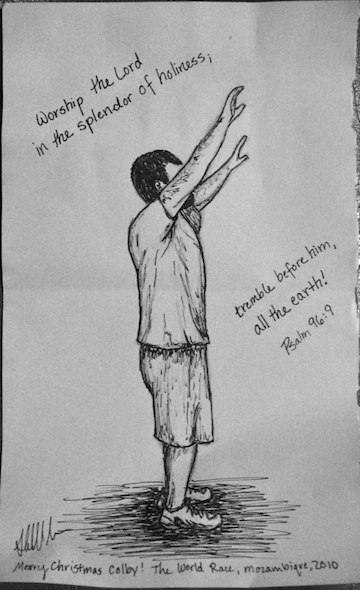 Worship the Lord
in the splendor of holiness;
tremble before him,
all the earth!
Psalm 96:9
Merry Christmas Colby! The World Race, Mozambique, 2010